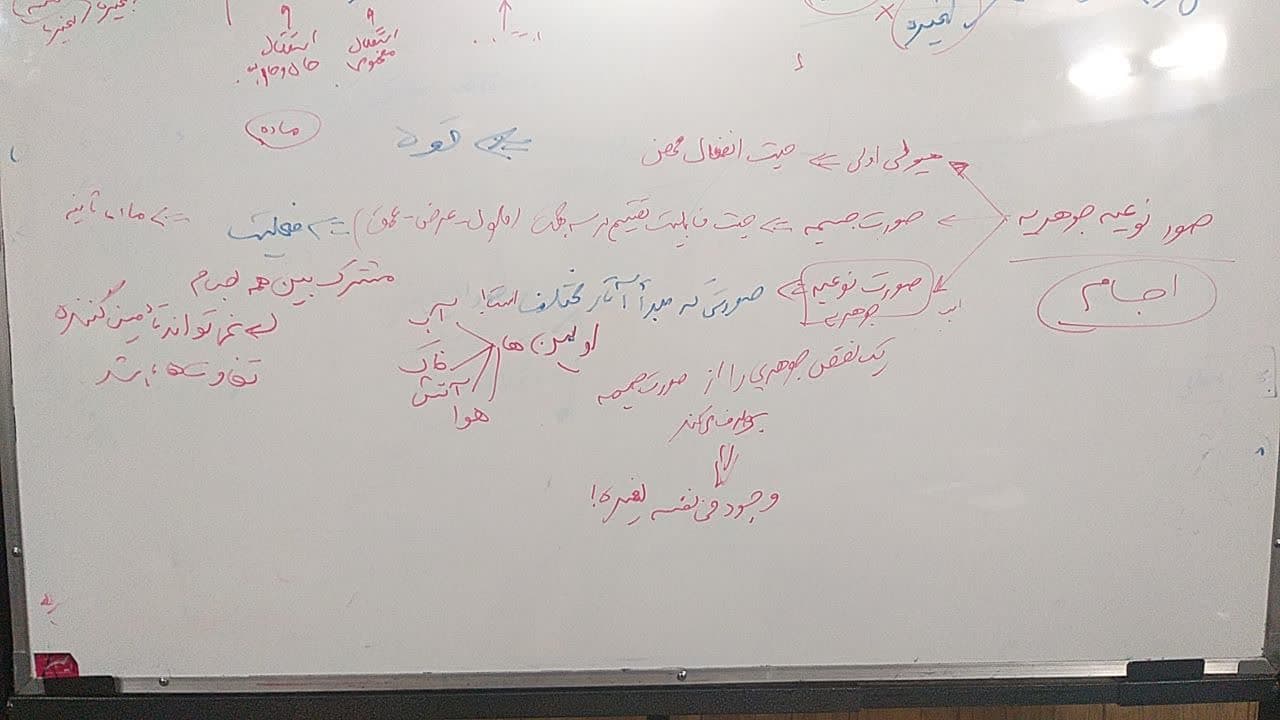 لغیره
انتقال
انتقال
مفهومی
ماده
هیولی اولی ⇐ حیث انفعال محض ⇐ قوه
صور نوعیه جوهریه
صورت جسمیه ⇐ حیث قابلیت تقسیم در سه جهت (طول-عرض-عمق) ⇐ فعلیت ⇐ ماده ثانیه
اجسام
مشترک بین همه اجسام
نمی تواند تأمین کننده
تفاوت ها باشد
صورت نوعیه جوهریه ⇐ صورتی که مبدأ آثار مختلف است
اولین ها
آب
خاک
آتش
هوا
یک نقص جوهری را از صورت جسمیه
برطرف می کند
وجود فی نفسه لغیره!